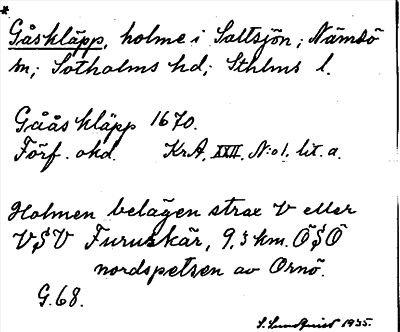 *
Gåskläpp, holme i Saltsjön; Nämdö
sn; Sotholms hd; Sthlms l.
Gåås kläpp 1670.
Förf. okd. KrA, XXII, N:o 1. lit. a.
Holmen belägen strax V eller
VSV Furuskär, 9,3 km. ÖSÖ
nordspetsen av Ornö.
G.68.
S. Sundquist 1935.